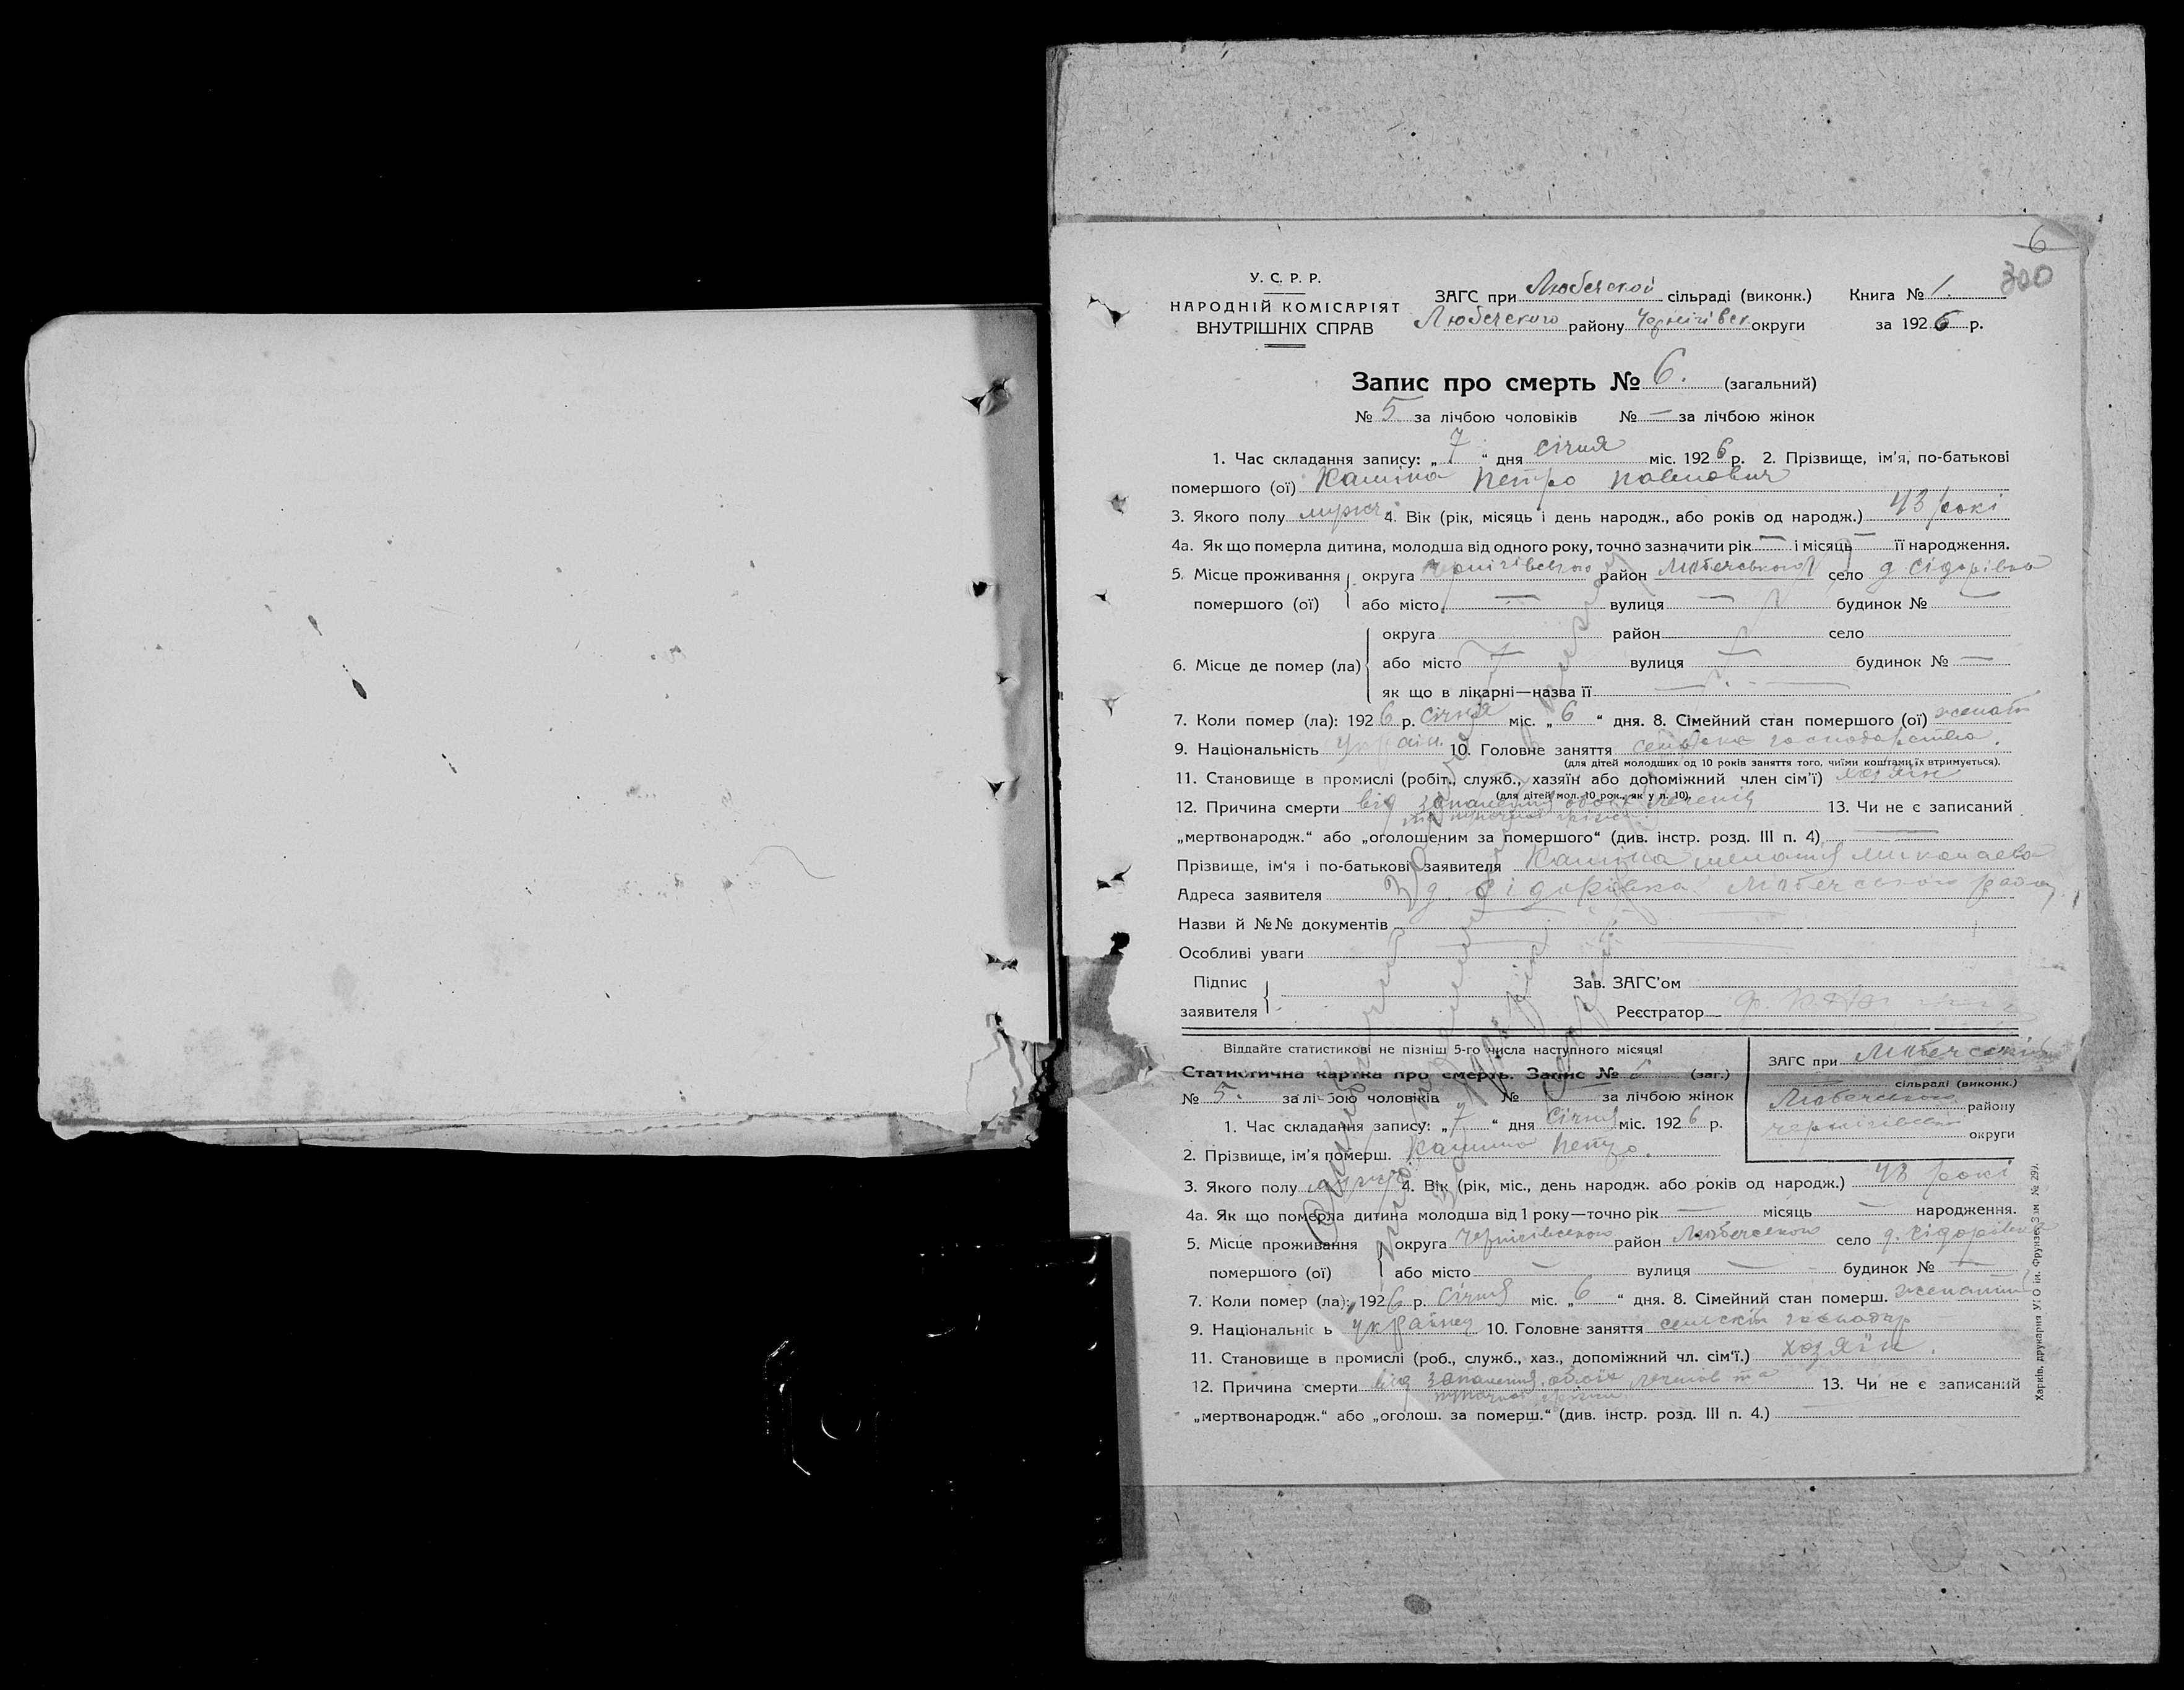 6
300
У. С. Р. Р.
НАРОДНІЙ КОМІСАРІЯТ
ВНУТРІШНІХ СПРАВ
ЗАГС при Любечской сільраді (виконк.) Книга № 1.
Любечского району Чернігівск округи за 1926 р.
Запис про смерть № 6. (загальний)
№ 5 за лічбою чоловіків № — за лічбою жінок
1. Час складання запису: „7“ дня січня міс. 1926 р. 2. Прізвище, ім’я, по-батькові
помершого (ої) Петро Павлович
3. Якого полу мужч. 4. Вік (рік, місяць і день народж., або років од народж.) 43 рокі
4а. Як що померла дитина, молодша від одного року, точно зазначити рік — і місяць — її народження.
5. Місце проживання округа Чернігівського район Любечського село д Сідорівка
помершого (ої) або місто — вулиця — будинок № —
округа район село
6. Місце де помер (ла) або місто вулиця будинок № —
як що в лікарні—назва її —
7. Коли помер (ла): 1926 р. Січня міс. „6“ дня. 8. Сімейний стан помершого (ої) женат
9. Національність україн. 10. Головне заняття сельске господарство.
(для дітей молодших од 10 років заняття того, чиїми коштами їх втримується).
11. Становище в промислі (робіт., служб., хазяїн або допоміжний член сім’ї) хозяїн
(для дітей мол. 10 рок., як у п. 10).
12. Причина смерти від запалення обоїх 13. Чи не є записаний
„мертвонародж.“ або „оголошеним за помершого“ (див. інстр. розд. III п. 4) —
Прізвище, ім‘я і по-батькові заявителя
Адреса заявителя д. Сідорівка Любечського району
Назви й №№ документів —
Особливі уваги
Підпис Зав. ЗАГС’ом
заявителя Реєстратор
Віддайте статистикові не пізніш 5-го числа наступного місяця!
ЗАГС при Любечскій
Статистична картка про смерть. Запис № 6 (заг.)
сільраді (виконк.)
№ 5. за лічбою чоловіків № за лічбою жінок
Любечського району
1. Час складання запису: „7“ дня Січня міс. 1926 р.
округи
2. Прізвище, ім’я померш. Петро.
3. Якого полу мужч 4. Вік (рік, міс., день народж. або років од народж.) 43 рокі
4а. Як що померла дитина молодша від 1 року—точно рік — місяць — народження.
5. Місце проживання округа Чернігівського район Любечського село д. Сідорівка
помершого (ої) або місто — вулиця — будинок № —
7. Коли помер (ла): 1926 р. Січня міс. „6“ дня. 8. Сімейний стан померш. женатий
9. Національніс ь українец 10. Головне заняття сельскій господар
11. Становище в промислі (роб., служб., хаз., допоміжний чл. сім‘ї.) хозяїн.
12. Причина смерти від запалення обоїх та 13. Чи не є записаний
„мертвонародж.“ або „оголош. за померш.“ (див. інстр. розд. III п. 4.)
Харків, друкарня УПО ім. Фрунзе. Зам № 297.